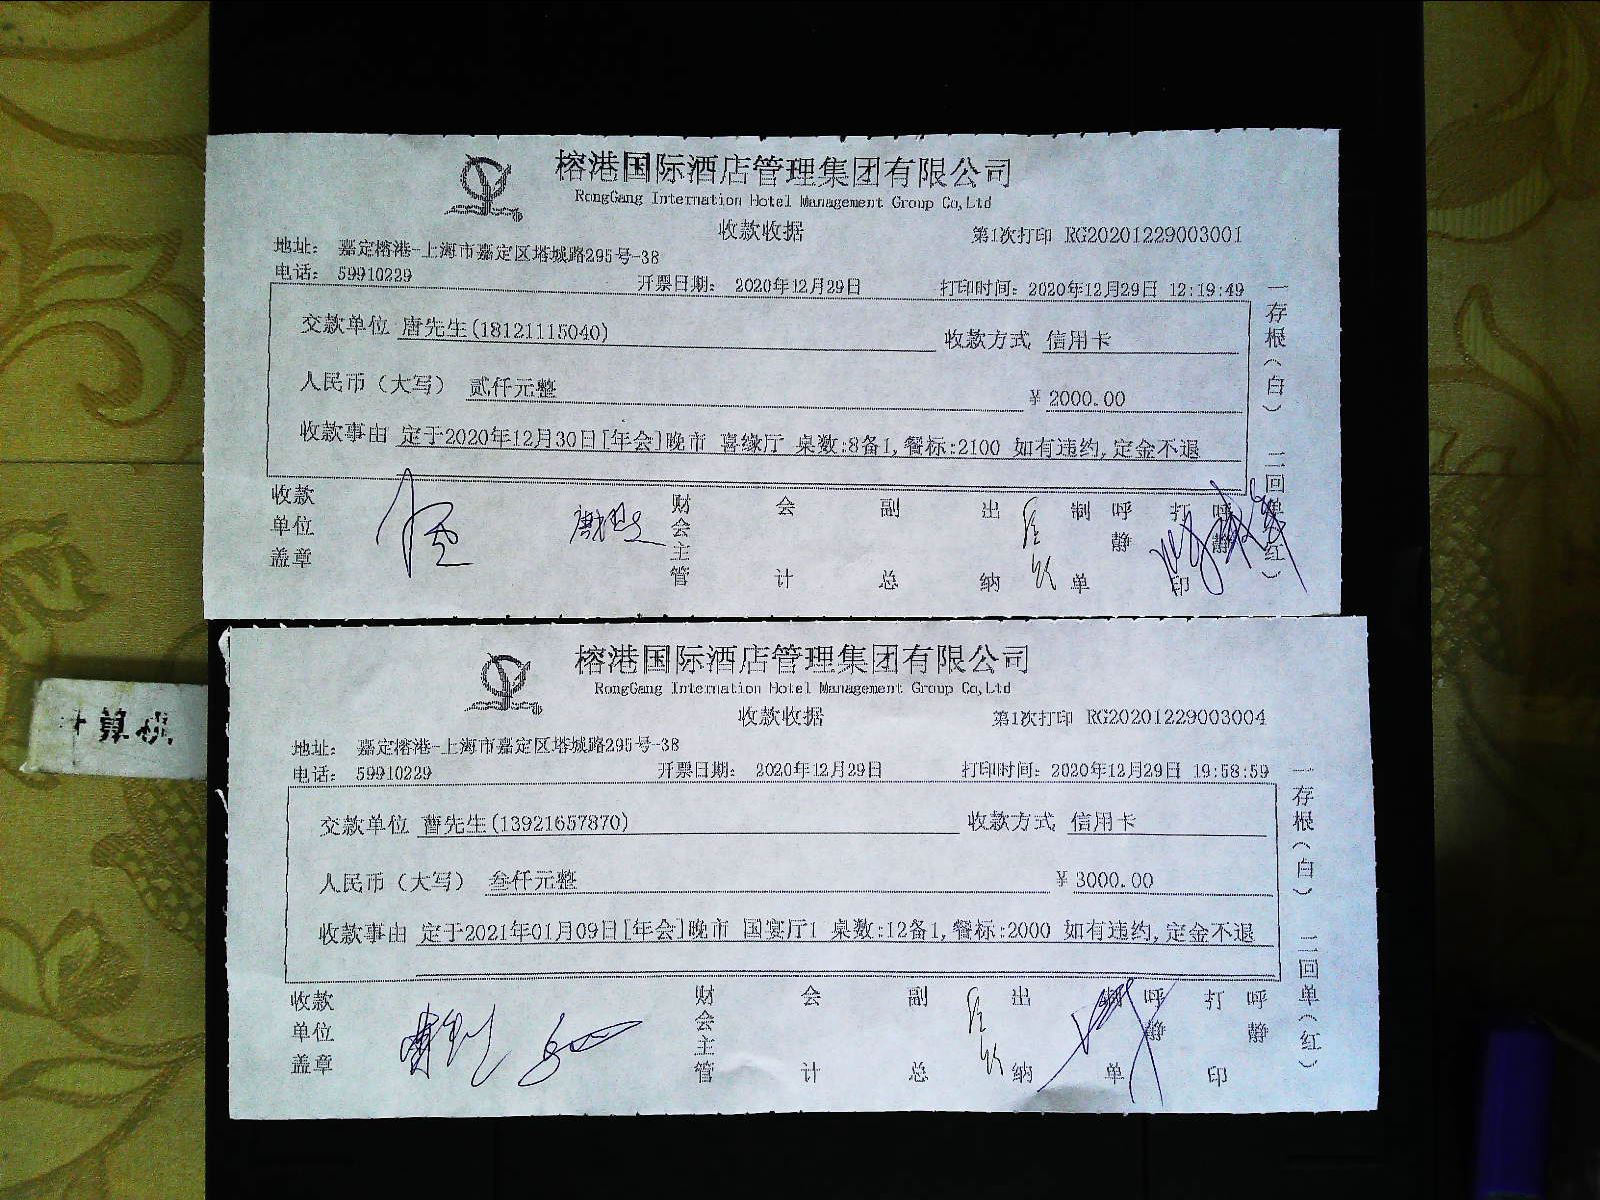 榕港国际酒店管理集团有限公司
RongGang Internation Hotel Management Group Co,Ltd
收款收据
第1次打印 RG20201229003001
地址： 嘉定榕港-上海市嘉定区塔城路295号-38
电话： 59910229
开票日期： 2020年12月29日
打印时间：2020年12月29日 12:19:49
交款单位 唐先生(18121115040)
收款方式 信用卡
人民币（大写） 贰仟元整
¥ 2000.00
收款事由 定于2020年12月30日[年会]晚市 喜缘厅 桌数:8备1,餐标:2100 如有违约,定金不退
一存根（白） 二回单（红）
收款单位盖章
财会主管
会计
副总
出纳
制单
呼静
打印
呼静
榕港国际酒店管理集团有限公司
RongGang Internation Hotel Management Group Co,Ltd
收款收据
第1次打印 RG20201229003004
地址： 嘉定榕港-上海市嘉定区塔城路295号-38
电话： 59910229
开票日期： 2020年12月29日
打印时间：2020年12月29日 19:58:59
交款单位 曹先生(13921657870)
收款方式 信用卡
人民币（大写） 叁仟元整
¥ 3000.00
收款事由 定于2021年01月09日[年会]晚市 国宴厅1 桌数:12备1,餐标:2000 如有违约,定金不退
一存根（白） 二回单（红）
收款单位盖章
财会主管
会计
副总
出纳
制单
呼静
打印
呼静